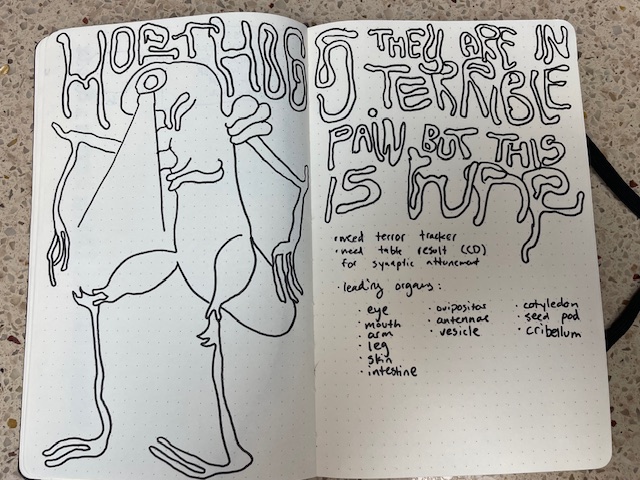 THEY ARE IN
TERRIBLE
PAIN BUT THIS
IS
· need terror tracker
· need table result (CD)
for synaptic attunement
· leading organs:
· eye
· mouth
· arm
· leg
· skin
· intestine
· ovipositor
· antennae
· vesicle
· cotyledon
· seed pod
· cribellum